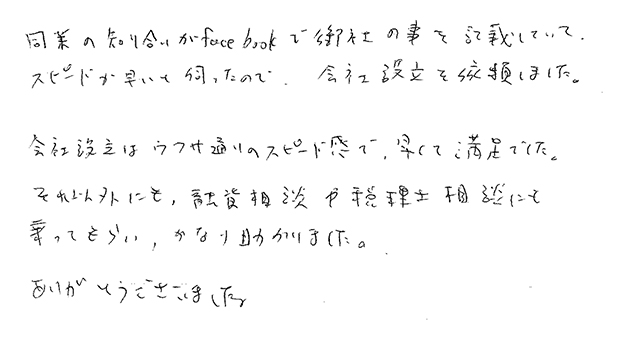 同業の知り合いがfacebookで御社の事を記載していて、
スピードが早いと伺ったので、会社設立を依頼しました。
会社設立はウワサ通りのスピード感で、早くて満足でした。
それ以外にも、融資相談や税理士相談にも
乗ってもらい、かなり助かりました。
ありがとうございました。